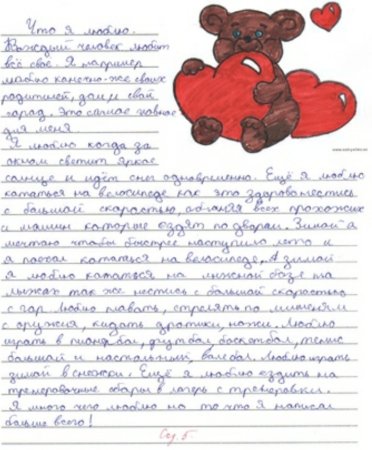 Что я люблю.
Каждый человек любит
всё своё. Я например
люблю канечно-же своих
родителей, дом и свой
город. Это самае главное
для меня.
Я люблю когда за
окном светит яркае
солнце и идёт снег одновременно. Ещё я люблю
кататься на велосипеде как это здорово нестись
с большой скоростью, обганяя всех прохожих
и машины которые ездят по дворам. Зимой я
мечтаю чтобы быстрее наступило лето и
я поехал кататься на велосипеде. А зимой
я люблю кататься на лыжной базе на
лыжах так же нестись с большой скоростью
с гор. Люблю плавать, стрелять по мишеням
с оружия, кидать дротики, ножи. Люблю
играть в пионербол, футбол, баскетбол, тенис
большой и настольный, валебол. Люблю играть
зимой в снежки. Ещё я люблю ездить на
тренеровочные сборы в лагерь с тренеровки.
Я много чего люблю но то что я написал
больше всего!
Соч. 5.